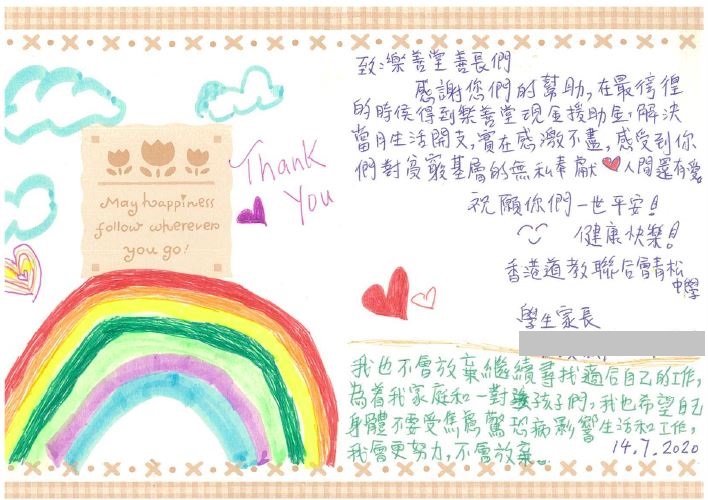 May happiness
follow wherever
you go!
Thank
You
致:樂善堂善長們
感謝您們的幫助,在最徬徨
的時侯得到樂善堂現金援助金,解決
當月生活開支,實在感激不盡,感受到你
們對貧窮基層的無私奉獻❤人間還有愛
祝願你們一世平安!
健康快樂!
香港道教聯合會青松
中學
學生家長
我也不會放棄繼續尋找適合自己的工作,
為着我家庭和一對孩子們,我也希望自己
身體不要受焦慮驚恐病影響生活和工作,
我會更努力,不會放棄。
14.7.2020